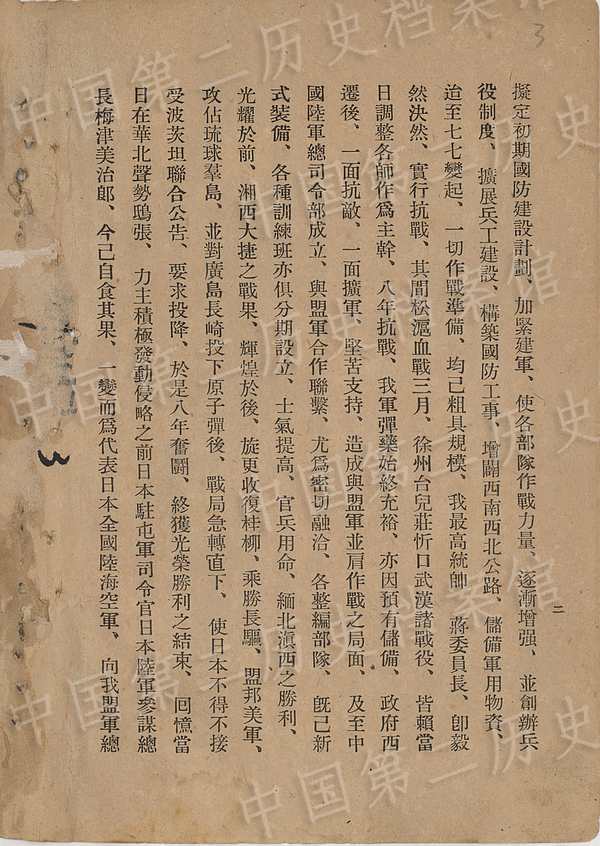 3
二
擬定初期國防建設計劃、加緊建軍、使各部隊作戰力量、逐漸增强、並創辦兵
役制度、擴展兵工建設、構築國防工事、增闢西南西北公路、儲備軍用物資、
迨至七七變起、一切作戰準備、均已粗具規模、我最高統帥 蔣委員長、卽毅
然決然、實行抗戰、其間松滬血戰三月、徐州台兒莊忻口武漢諸戰役、皆賴當
日調整各師作爲主幹、八年抗戰、我軍彈藥始終充裕、亦因預有儲備、政府西
遷後、一面抗敵、一面擴軍、堅苦支持、造成與盟軍並肩作戰之局面、及至中
國陸軍總司令部成立、與盟軍合作聯繫、尤爲密切融洽、各整編部隊、旣已新
式裝備、各種訓練班亦俱分期設立、士氣提高、官兵用命、緬北滇西之勝利、
光耀於前、湘西大捷之戰果、輝煌於後、旋更收復桂柳、乘勝長驅、盟邦美軍、
攻佔琉球羣島、並對廣島長崎投下原子彈後、戰局急轉直下、使日本不得不接
受波茨坦聯合公告、要求投降、於是八年奮鬭、終獲光榮勝利之結束、回憶當
日在華北聲勢鴟張、力主積極發動侵略之前日本駐屯軍司令官日本陸軍參謀總
長梅津美治郎、今已自食其果、一變而爲代表日本全國陸海空軍、向我盟軍總
中国第二历史档案馆
中国第二历史档案馆
中国第二历史档案馆
中国第二历史